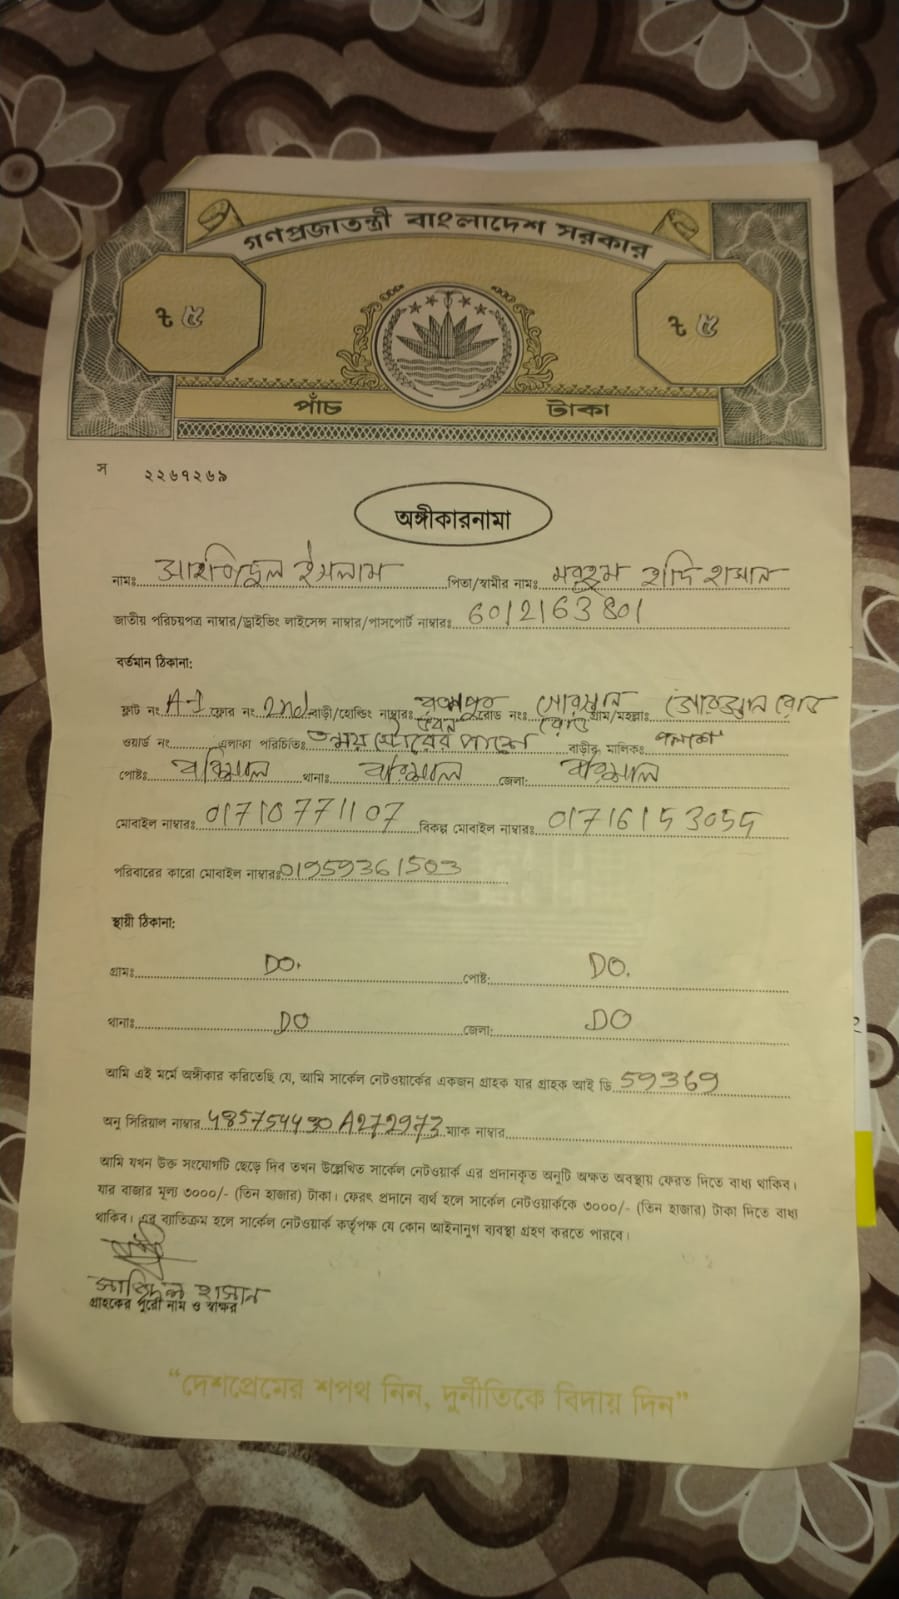 গণপ্রজাতন্ত্রী বাংলাদেশ সরকার
৳ ৫ ৳ ৫
পাঁচ টাকা
স ২২৬৭২৬৯
অঙ্গীকারনামা
নামঃ ইসলাম পিতা/স্বামীর নামঃ মরহুম হাদি হাসান
জাতীয় পরিচয়পত্র নাম্বার/ড্রাইভিং লাইসেন্স নাম্বার/পাসপোর্ট নাম্বারঃ 6012163801
বর্তমান ঠিকানা:
ফ্লাট নং A-1 ফ্লোর নং 2nd বাড়ী/হোল্ডিং নাম্বারঃ ভবন রোড নং রোড গ্রাম/মহল্লাঃ রোড
ওয়ার্ড নং এলাকা পরিচিতিঃ স্টোরের পাশে বাড়ীর মালিকঃ পলাশ
পোষ্টঃ বরিশাল থানাঃ বরিশাল জেলা: বরিশাল
মোবাইল নাম্বারঃ 01710771107 বিকল্প মোবাইল নাম্বারঃ
পরিবারের কারো মোবাইল নাম্বারঃ 01959361503
স্থায়ী ঠিকানা:
গ্রামঃ DO. পোষ্ট: DO.
থানাঃ DO জেলা: DO
আমি এই মর্মে অঙ্গীকার করিতেছি যে, আমি সার্কেল নেটওয়ার্কের একজন গ্রাহক যার গ্রাহক আই ডি 59369
অনু সিরিয়াল নাম্বার ম্যাক নাম্বার
আমি যখন উক্ত সংযোগটি ছেড়ে দিব তখন উল্লেখিত সার্কেল নেটওয়ার্ক এর প্রদানকৃত অনুটি অক্ষত অবস্থায় ফেরত দিতে বাধ্য থাকিব।
যার বাজার মূল্য ৩০০০/- (তিন হাজার) টাকা। ফেরৎ প্রদানে ব্যর্থ হলে সার্কেল নেটওয়ার্ককে ৩০০০/- (তিন হাজার) টাকা দিতে বাধ্য
থাকিব। এর ব্যাতিক্রম হলে সার্কেল নেটওয়ার্ক কর্তৃপক্ষ যে কোন আইনানুগ ব্যবস্থা গ্রহণ করতে পারবে।
হাসান
গ্রাহকের পুরো নাম ও স্বাক্ষর
“দেশপ্রেমের শপথ নিন, দুর্নীতিকে বিদায় দিন”